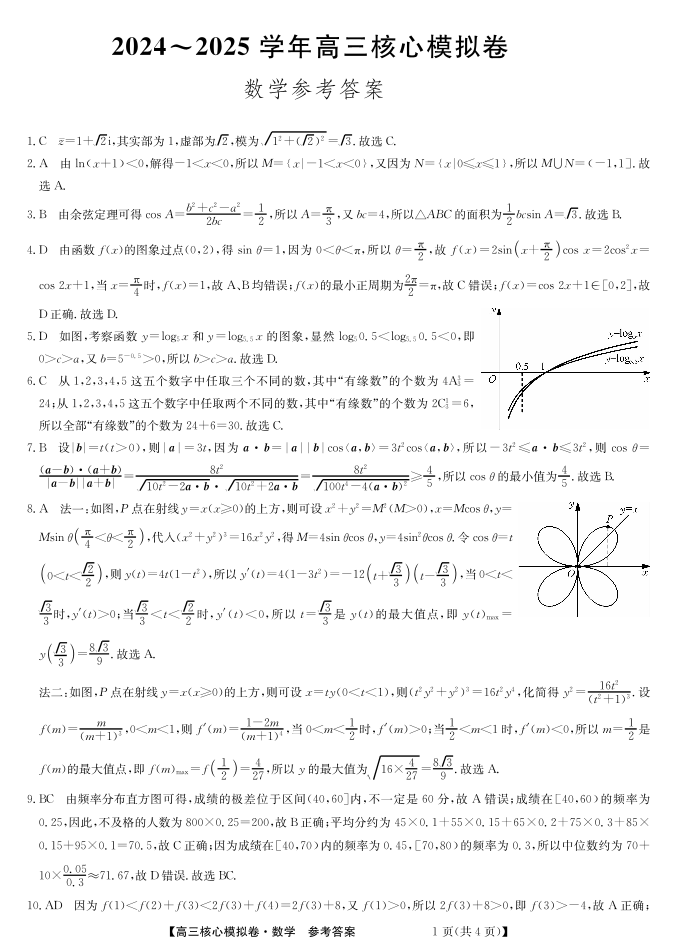 2024～2025 学年高三核心模拟卷
数学参考答案
1. C　z̄=1+√2i,其实部为 1,虚部为√2,模为√(1²+(√2)²)=√3. 故选 C.
2. A　由 ln(x+1)<0,解得-1<x<0,所以 M={x|-1<x<0},又因为 N={x|0≤x≤1},所以 M∪N=(-1,1]. 故
选 A.
3. B　由余弦定理可得 cos A=(b²+c²-a²)/(2bc)=1/2,所以 A=π/3,又 bc=4,所以△ABC 的面积为 1/2 bcsin A=√3. 故选 B.
4. D　由函数 f(x)的图象过点(0,2),得 sin θ=1,因为 0<θ<π,所以 θ=π/2,故 f(x)=2sin(x+π/2)cos x=2cos²x=
cos 2x+1,当 x=π/4时,f(x)=1,故 A、B 均错误;f(x)的最小正周期为2π/2=π,故 C 错误;f(x)=cos 2x+1∈[0,2],故
D 正确. 故选 D.
5. D　如图,考察函数 y=log₅x 和 y=log₅.₅x 的图象,显然 log₅0.5<log₅.₅0.5<0,即
0>c>a,又 b=5^(-0.5)>0,所以 b>c>a. 故选 D.
y
y=log₅x
y=log₅.₅x
0.5 1
O x
6. C　从 1,2,3,4,5 这五个数字中任取三个不同的数,其中“有缘数”的个数为 4A₃³=
24;从 1,2,3,4,5 这五个数字中任取两个不同的数,其中“有缘数”的个数为 2C₃²=6,
所以全部“有缘数”的个数为 24+6=30. 故选 C.
7. B　设|b|=t(t>0),则|a|=3t,因为 a·b=|a||b|cos⟨a,b⟩=3t²cos⟨a,b⟩,所以-3t²≤a·b≤3t²,则 cos θ=
(a-b)·(a+b)/(|a-b||a+b|)=8t²/(√(10t²-2a·b)·√(10t²+2a·b))=8t²/√(100t⁴-4(a·b)²)≥4/5,所以 cos θ 的最小值为4/5. 故选 B.
8. A　法一:如图,P 点在射线 y=x(x≥0)的上方,则可设 x²+y²=M²(M>0),x=Mcos θ,y=
Msin θ(π/4<θ<π/2),代入(x²+y²)³=16x²y²,得 M=4sin θcos θ,y=4sin²θcos θ. 令 cos θ=t
(0<t<√2/2),则 y(t)=4t(1-t²),所以 y′(t)=4(1-3t²)=-12(t+√3/3)(t-√3/3),当 0<t<
√3/3时,y′(t)>0;当√3/3<t<√2/2时,y′(t)<0,所以 t=√3/3是 y(t)的最大值点,即 y(t)max=
y(√3/3)=8√3/9. 故选 A.
y
y=x
P
O x
法二:如图,P 点在射线 y=x(x≥0)的上方,则可设 x=ty(0<t<1),则(t²y²+y²)³=16t²y⁴,化简得 y²=16t²/(t²+1)³. 设
f(m)=m/(m+1)³,0<m<1,则 f′(m)=(1-2m)/(m+1)⁴,当 0<m<1/2时,f′(m)>0;当1/2<m<1 时,f′(m)<0,所以 m=1/2是
f(m)的最大值点,即 f(m)max=f(1/2)=4/27,所以 y 的最大值为√(16×4/27)=8√3/9. 故选 A.
9. BC　由频率分布直方图可得,成绩的极差位于区间(40,60]内,不一定是 60 分,故 A 错误;成绩在[40,60)的频率为
0.25,因此,不及格的人数为 800×0.25=200,故 B 正确;平均分约为 45×0.1+55×0.15+65×0.2+75×0.3+85×
0.15+95×0.1=70.5,故 C 正确;因为成绩在[40,70)内的频率为 0.45,[70,80)的频率为 0.3,所以中位数约为 70+
10×0.05/0.3≈71.67,故 D 错误. 故选 BC.
10. AD　因为 f(1)<f(2)+f(3)<2f(3)+f(4)=2f(3)+8,又 f(1)>0,所以 2f(3)+8>0,即 f(3)>-4,故 A 正确;
【高三核心模拟卷·数学　参考答案　　1 页(共 4 页)】